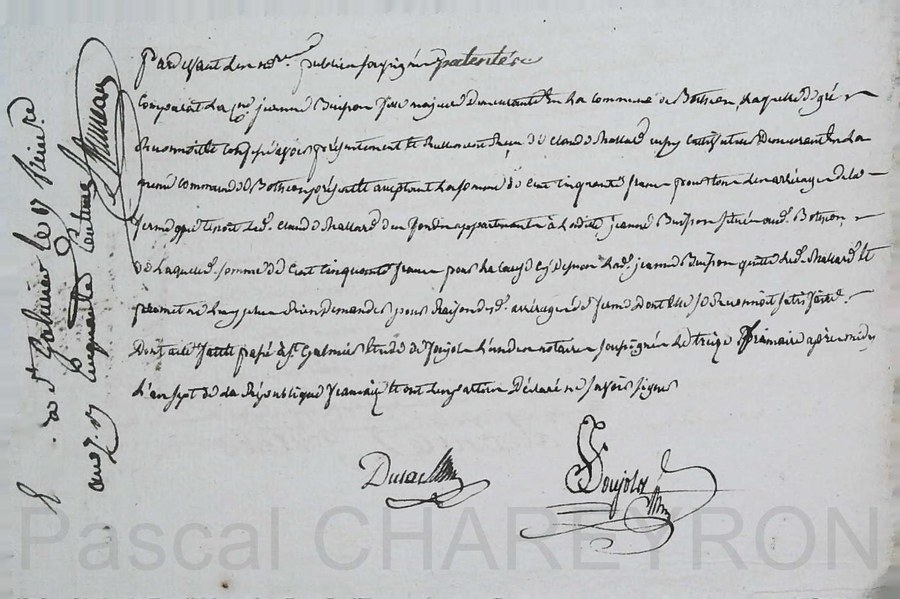 Pardevant les no.res publics soussignés patentés
Comparut la c.ne jeanne Buisson fille majeure demeurante en la commune de Boisson, laquelle de gré
reconnoit et confesse avoir présentement et reellement reçu de claude Mallard
demeurant en la
commune de Boisson présent et acceptant la somme de cent cinquante francs pour tous les arrérages de la
ferme que tenoit led. claude Mallard d'un fonds appartenant à ladite jeanne Buisson situé aud. Boisson,
de laquelle somme de cent cinquante francs pour la cause cy dessus lad. jeanne Buisson quitte led. Mallard et
promet ne luy jamais rien demander pour raison des d. arrérages de ferme dont elle se reconnoit satisfaite.
Dont acte fait et passé à St Galmier étude de Soujols l'un des notaires soussignés le treize frimaire après midy
l'an sept de la République française et ont les parties déclaré ne savoir signer
Dusac
Soujols
E. à St Galmier le 17 frimaire
an 7. R cinquante centimes